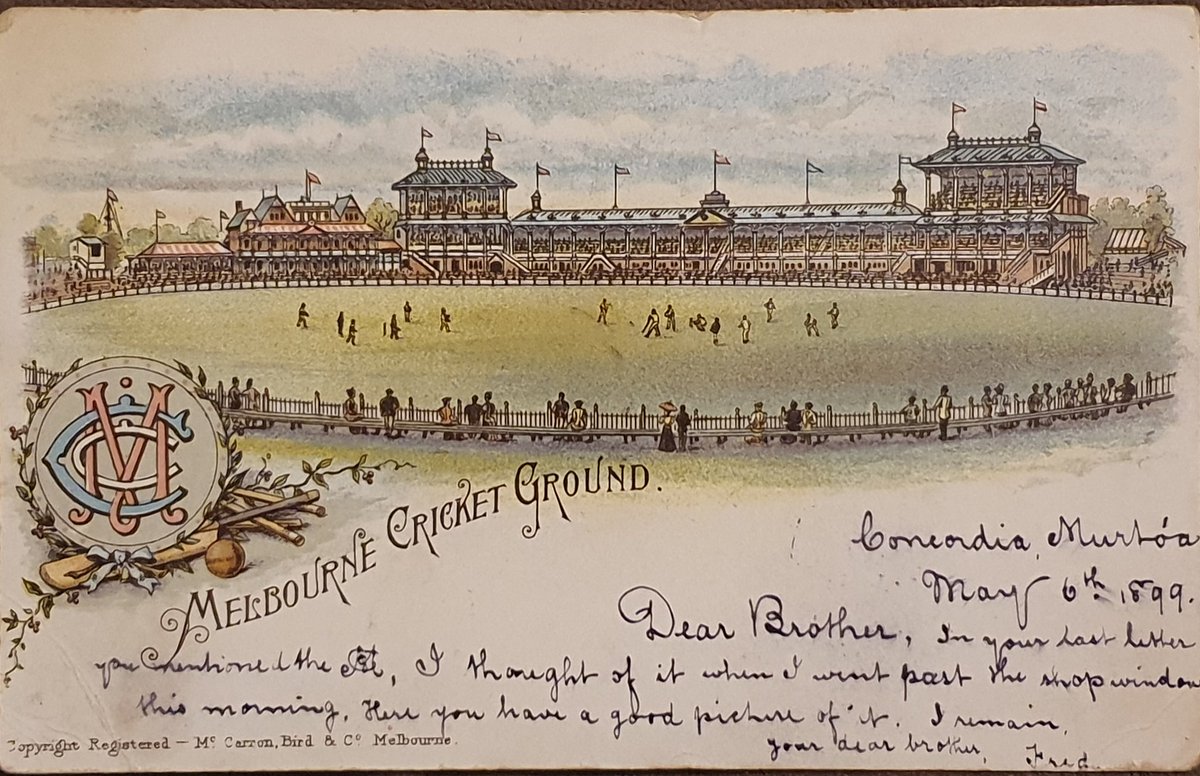 MCC
MELBOURNE CRICKET GROUND.
Concordia, Murtóa
May 6th 1899.
Dear Brother, In your last letter
you mentioned the, I thought of it when I went past the shop window
this morning, Here you have a good picture of it. I remain,
your dear brother,
Fred.
Copyright Registered – Mc Carron, Bird & Co Melbourne.